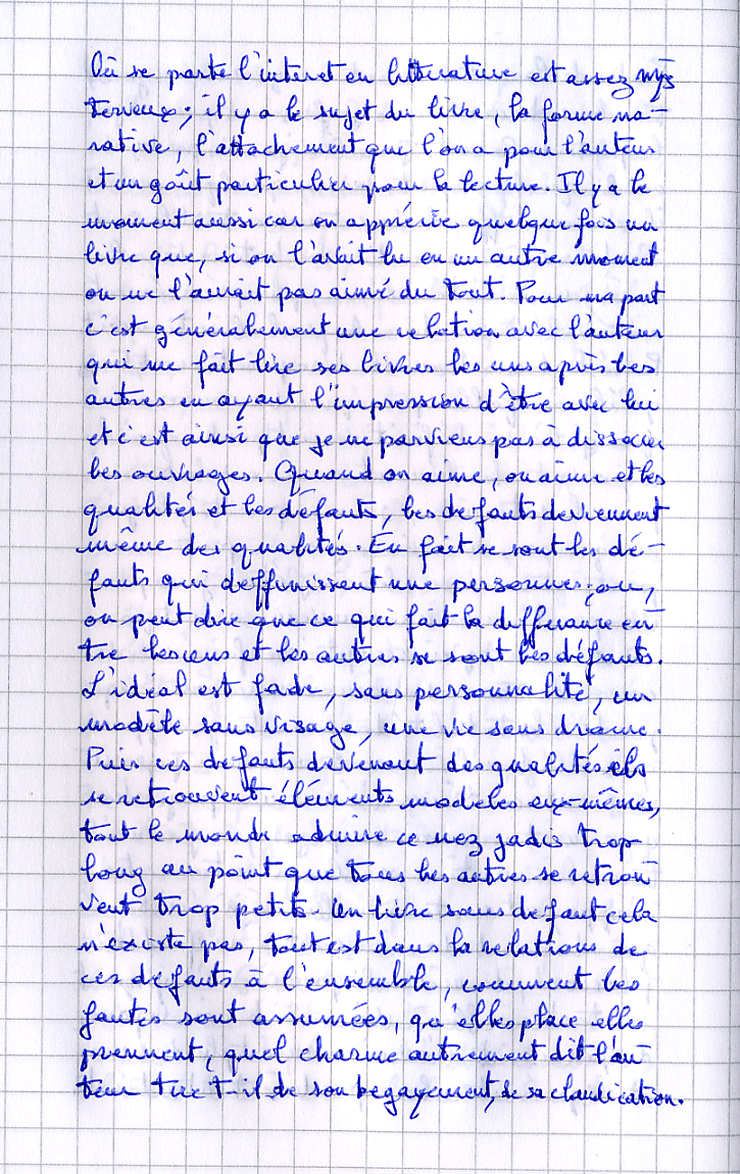 Où se porte l'interet en litterature est assez mys
terieux; il y a le sujet du livre, la forme na-
rative, l'attachement que l'on a pour l'auteur
et un goût particulier pour la lecture. Il y a le
moment aussi car on apprécie quelque fois un
livre que, si on l'avait lu en un autre moment
on ne l'aurait pas aimé du tout. Pour ma part
c'est généralement une relation avec l'auteur
qui me fait lire ses livres les uns après les
autres en ayant l'impression d'être avec lui
et c'est ainsi que je ne parviens pas à dissocier
les ouvrages. Quand on aime, on aime et les
qualités et les défauts, les defauts deviennent
même des qualités. En fait se sont les dé-
fauts qui deffinissent une personnes, ou,
on peut dire que ce qui fait la difference en
tre les uns et les autres se sont les défauts.
L'idéal est fade, sans personnalité, un
modèle sans visage, une vie sans drame.
Puis ces defauts devenant des qualités ils
se retrouvent éléments modeles eux-mêmes,
tout le monde admire ce nez jadis trop
long au point que tous les autres se retrou
vent trop petits. Un livre sans defaut cela
n'existe pas, tout est dans la relations de
ces defauts à l'ensemble, comment les
fautes sont assumées, qu'elles place elles
prennent, quel charme autrement dit l'au
teur tire t-il de son begayement, de sa claudication.